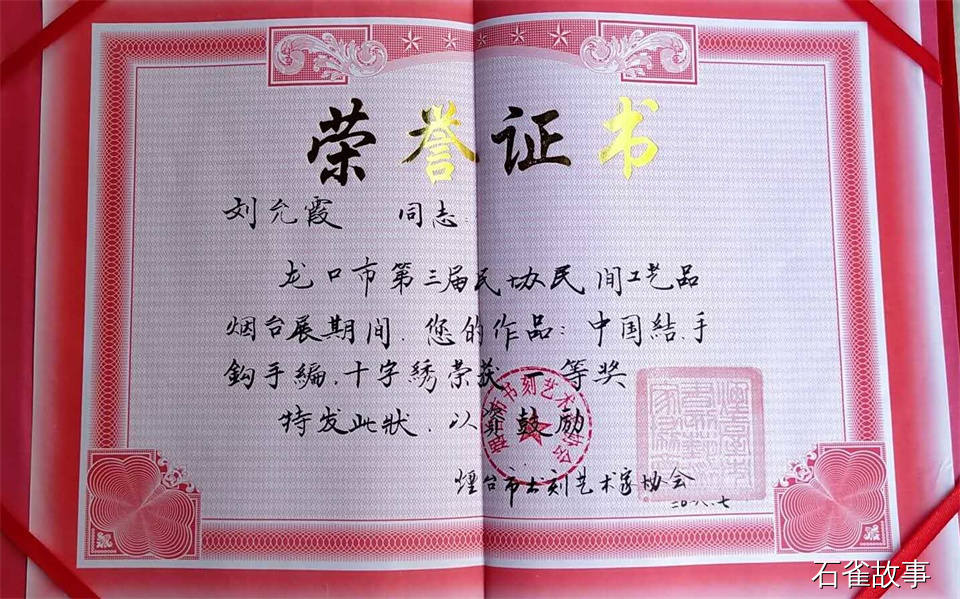 荣誉证书
刘允霞 同志：
龙口市第三届民协民间工艺品
烟台展期间.您的作品：中国結.手
鈎手編.十字綉荣获一等奖
特发此狀.以資鼓励
烟台市书刻艺术家协会
石雀故事